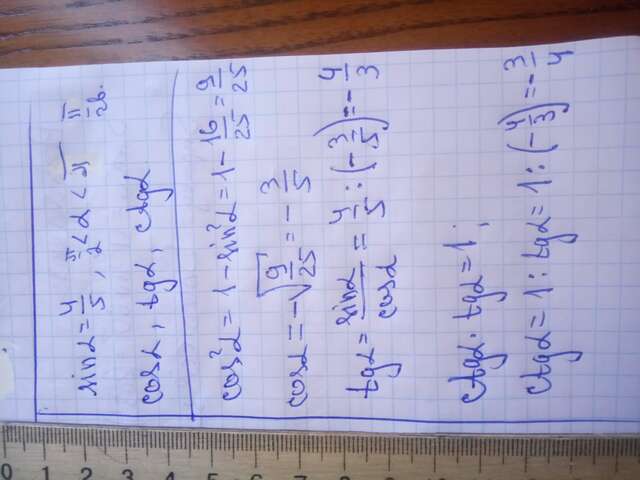 sinα = 4/5, π/2 < α < π II чв.
cosα, tgα, ctgα
cos²α = 1 - sin²α = 1 - 16/25 = 9/25
cosα = -√(9/25) = -3/5
tgα = sinα/cosα = 4/5 : (-3/5) = -4/3
ctgα · tgα = 1;
ctgα = 1 : tgα = 1 : (-4/3) = -3/4
0 1 2 3 4 5 6 7 8